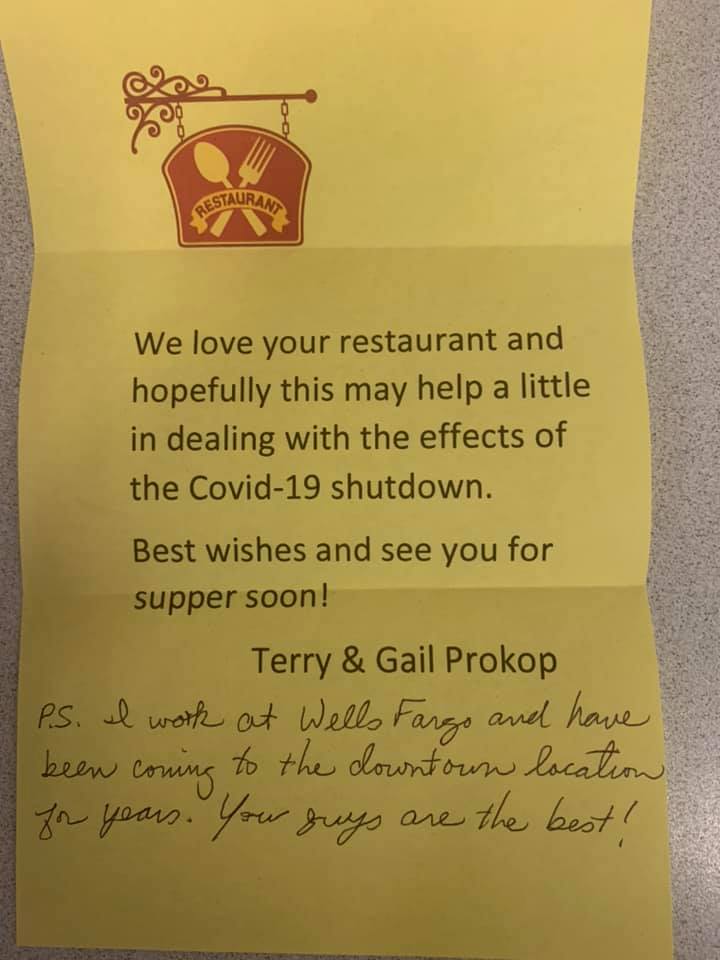 RESTAURANT
We love your restaurant and
hopefully this may help a little
in dealing with the effects of
the Covid-19 shutdown.
Best wishes and see you for
supper soon!
Terry & Gail Prokop
P.S. I work at Wells Fargo and have
been coming to the downtown location
for years. You guys are the best!